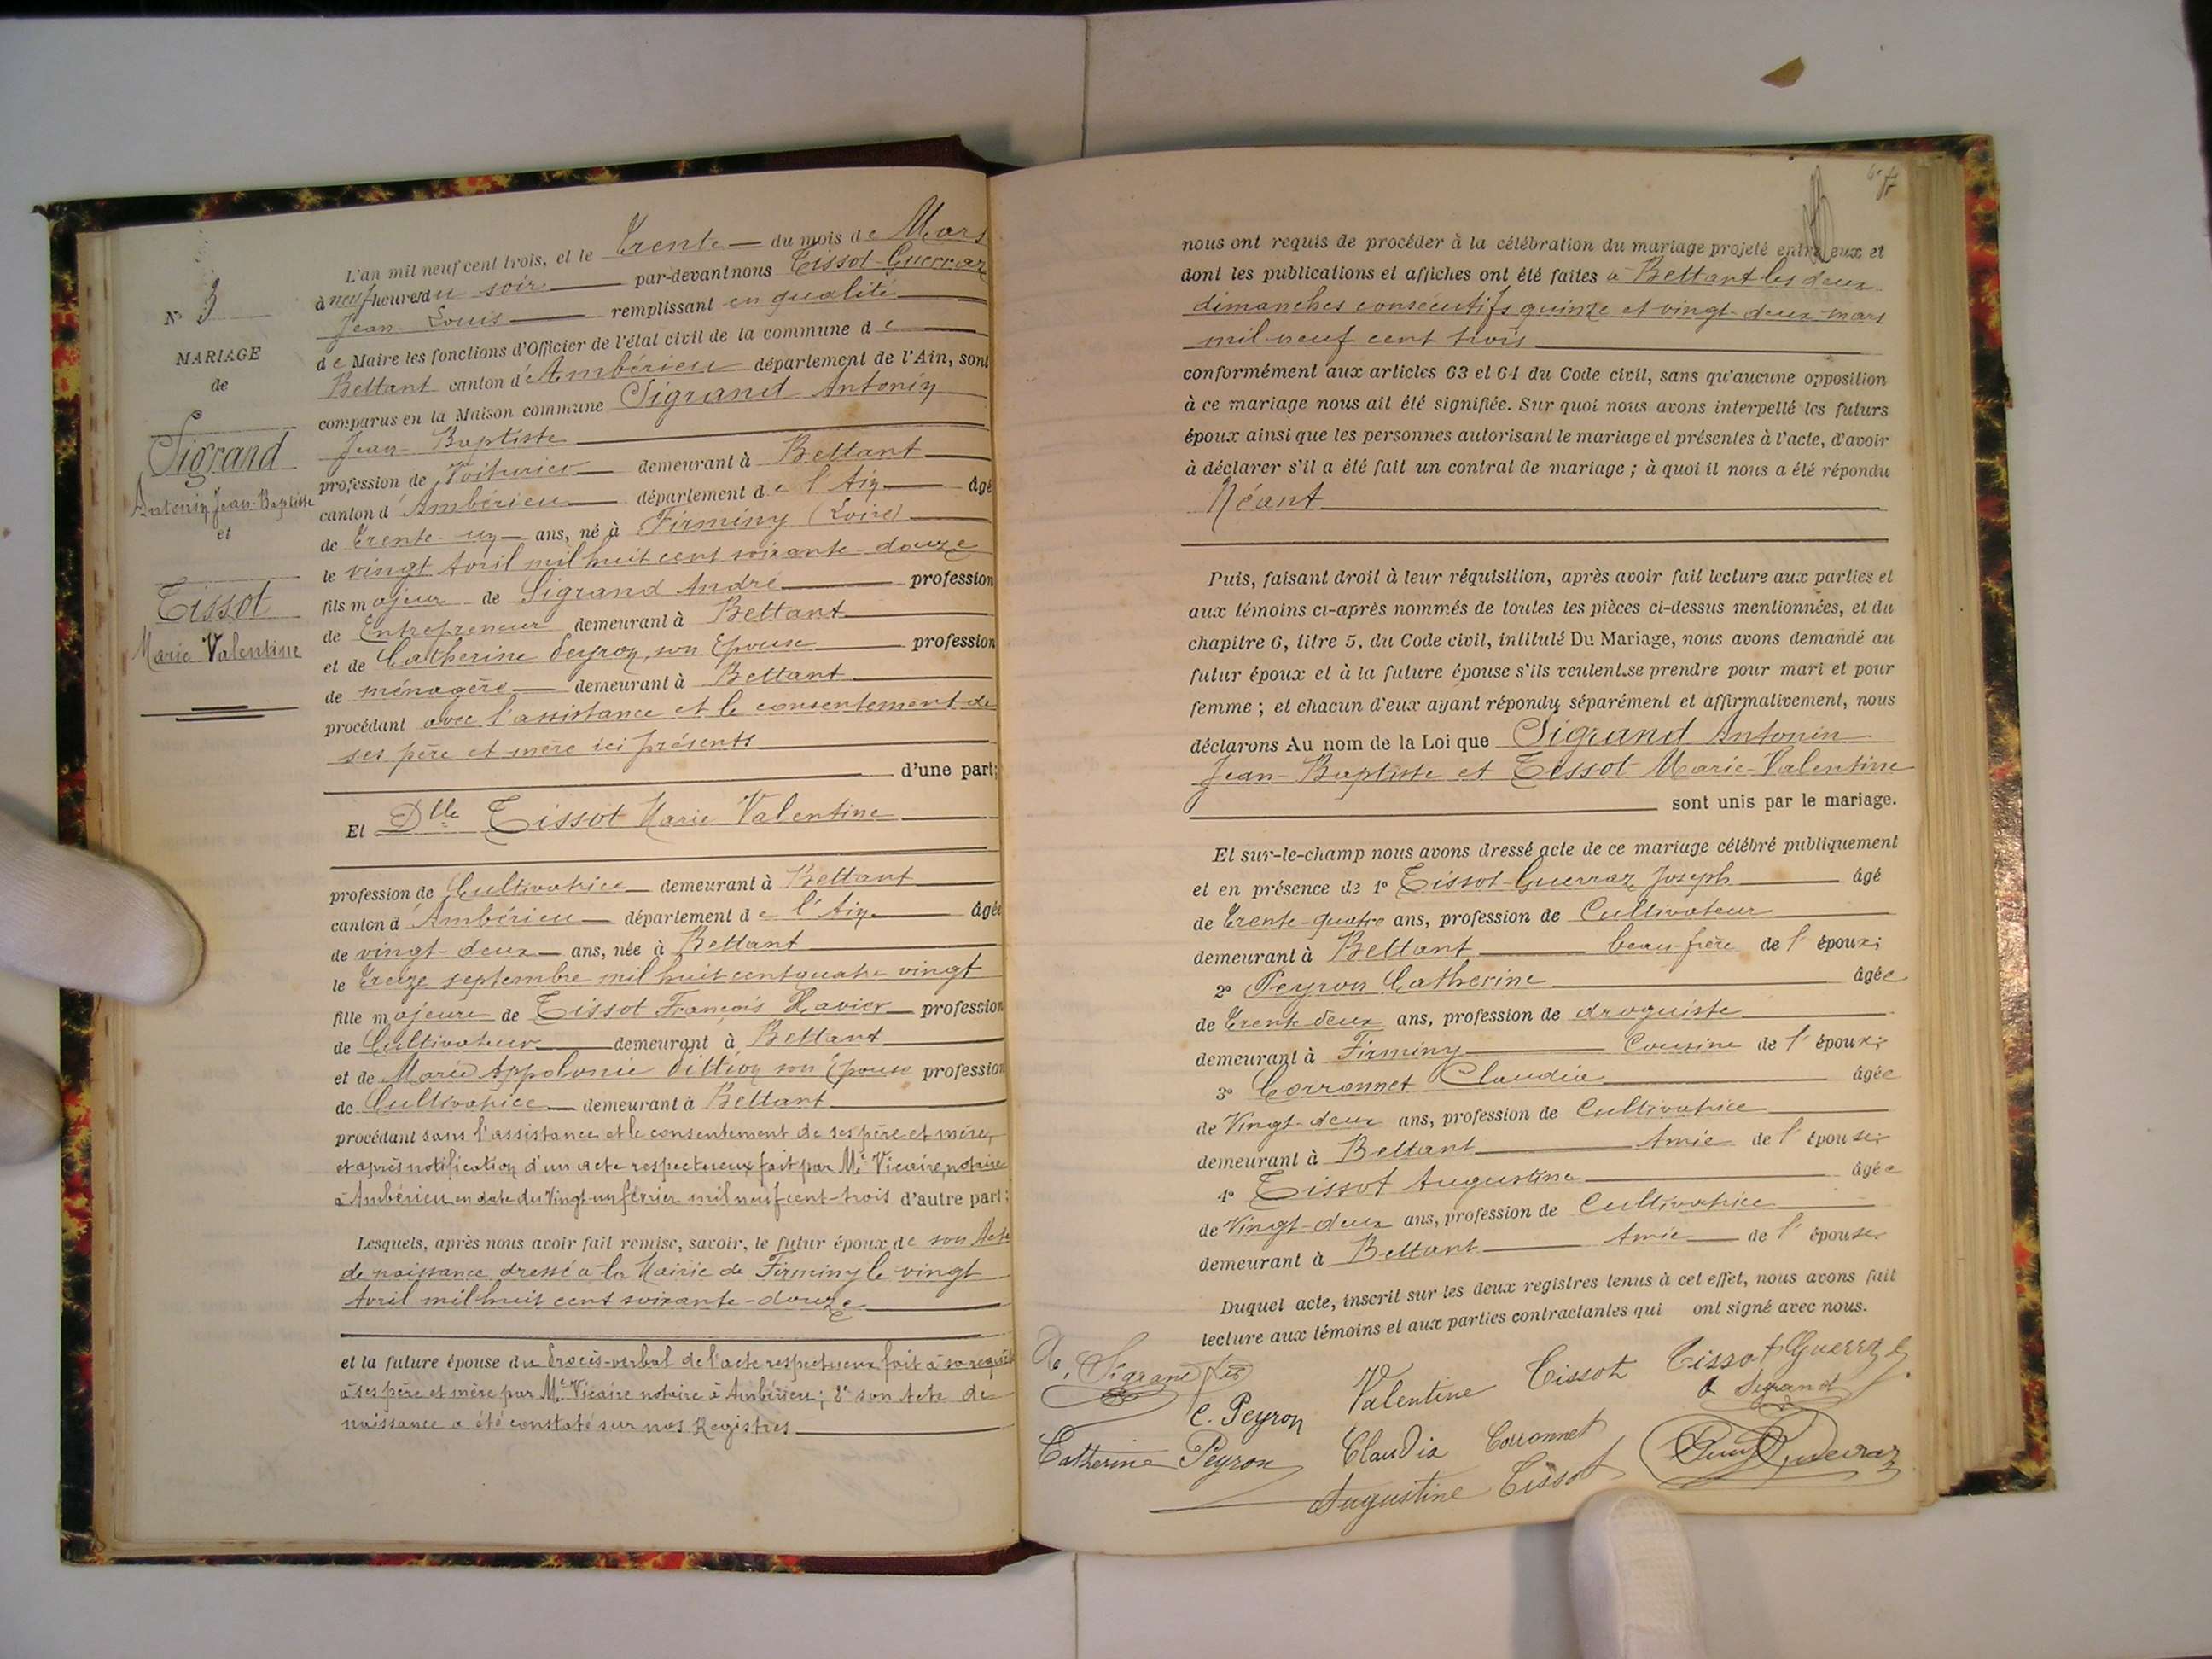 N° 3
MARIAGE
de
Sigrand
Antonin Jean-Baptiste
et
Tissot
Marie Valentine
L'an mil neuf cent trois, et le Trente du mois de Mars
à neuf heures du soir par-devant nous Tissot-Guerraz
Jean-Louis remplissant en qualité
de Maire les fonctions d'Officier de l'état civil de la commune de
Bettant canton d'Ambérieu département de l'Ain, sont
comparus en la Maison commune Sigrand Antonin
Jean-Baptiste
profession de Voiturier demeurant à Bettant
canton d'Ambérieu département de l'Ain âgé
de Trente-un ans, né à Firminy (Loire)
le vingt Avril mil huit cent soixante-douze
fils majeur de Sigrand André profession
de Entrepreneur demeurant à Bettant
et de Catherine Peyron, son Epouse profession
de ménagère demeurant à Bettant
procédant avec l'assistance et le consentement de
ses père et mère ici présents
d'une part;
Et Dlle Tissot Marie Valentine
profession de Cultivatrice demeurant à Bettant
canton d'Ambérieu département de l'Ain âgée
de vingt-deux ans, née à Bettant
le Treize septembre mil huit cent quatre vingt
fille majeure de Tissot François Xavier profession
de Cultivateur demeurant à Bettant
et de Marie Appolonie Dittion son Epouse profession
de Cultivatrice demeurant à Bettant
procédant sans l'assistance et le consentement de ses père et mère,
et après notification d'un acte respectueux fait par Me Vicaire, notaire
à Ambérieu en date du Vingt-un février mil neuf cent-trois d'autre part;
Lesquels, après nous avoir fait remise, savoir, le futur époux de son Acte
de naissance dressé à la Mairie de Firminy le vingt
Avril mil huit cent soixante-douze
et la future épouse du Procès-verbal de l'acte respectueux fait à sa requête
à ses père et mère par Me Vicaire notaire à Ambérieu; 2° son Acte de
naissance a été constaté sur nos Registres
nous ont requis de procéder à la célébration du mariage projeté entre eux et
dont les publications et affiches ont été faites à Bettant les deux
dimanches consécutifs quinze et vingt-deux mars
mil neuf cent trois
conformément aux articles 63 et 64 du Code civil, sans qu'aucune opposition
à ce mariage nous ait été signifiée. Sur quoi nous avons interpellé les futurs
époux ainsi que les personnes autorisant le mariage et présentes à l'acte, d'avoir
à déclarer s'il a été fait un contrat de mariage; à quoi il nous a été répondu
Néant
Puis, faisant droit à leur réquisition, après avoir fait lecture aux parties et
aux témoins ci-après nommés de toutes les pièces ci-dessus mentionnées, et du
chapitre 6, titre 5, du Code civil, intitulé Du Mariage, nous avons demandé au
futur époux et à la future épouse s'ils veulent se prendre pour mari et pour
femme; et chacun d'eux ayant répondu séparément et affirmativement, nous
déclarons Au nom de la Loi que Sigrand Antonin
Jean-Baptiste et Tissot Marie-Valentine
sont unis par le mariage.
Et sur-le-champ nous avons dressé acte de ce mariage célébré publiquement
et en présence de 1° Tissot-Guerraz Joseph âgé
de Trente-quatre ans, profession de Cultivateur
demeurant à Bettant beau-frère de l'époux;
2° Peyron Catherine âgée
de Trente deux ans, profession de droguiste
demeurant à Firminy Cousine de l'époux;
3° Corronnet Claudia âgée
de Vingt-deux ans, profession de Cultivatrice
demeurant à Bettant Amie de l'épouse;
4° Tissot Augustine âgée
de Vingt-deux ans, profession de Cultivatrice
demeurant à Bettant Amie de l'épouse.
Duquel acte, inscrit sur les deux registres tenus à cet effet, nous avons fait
lecture aux témoins et aux parties contractantes qui ont signé avec nous.
Sigrand Valentine Tissot Tissot Guerraz
C. Peyron A Sigrand
Catherine Peyron Claudia Corronnet Guerraz
Augustine Tissot